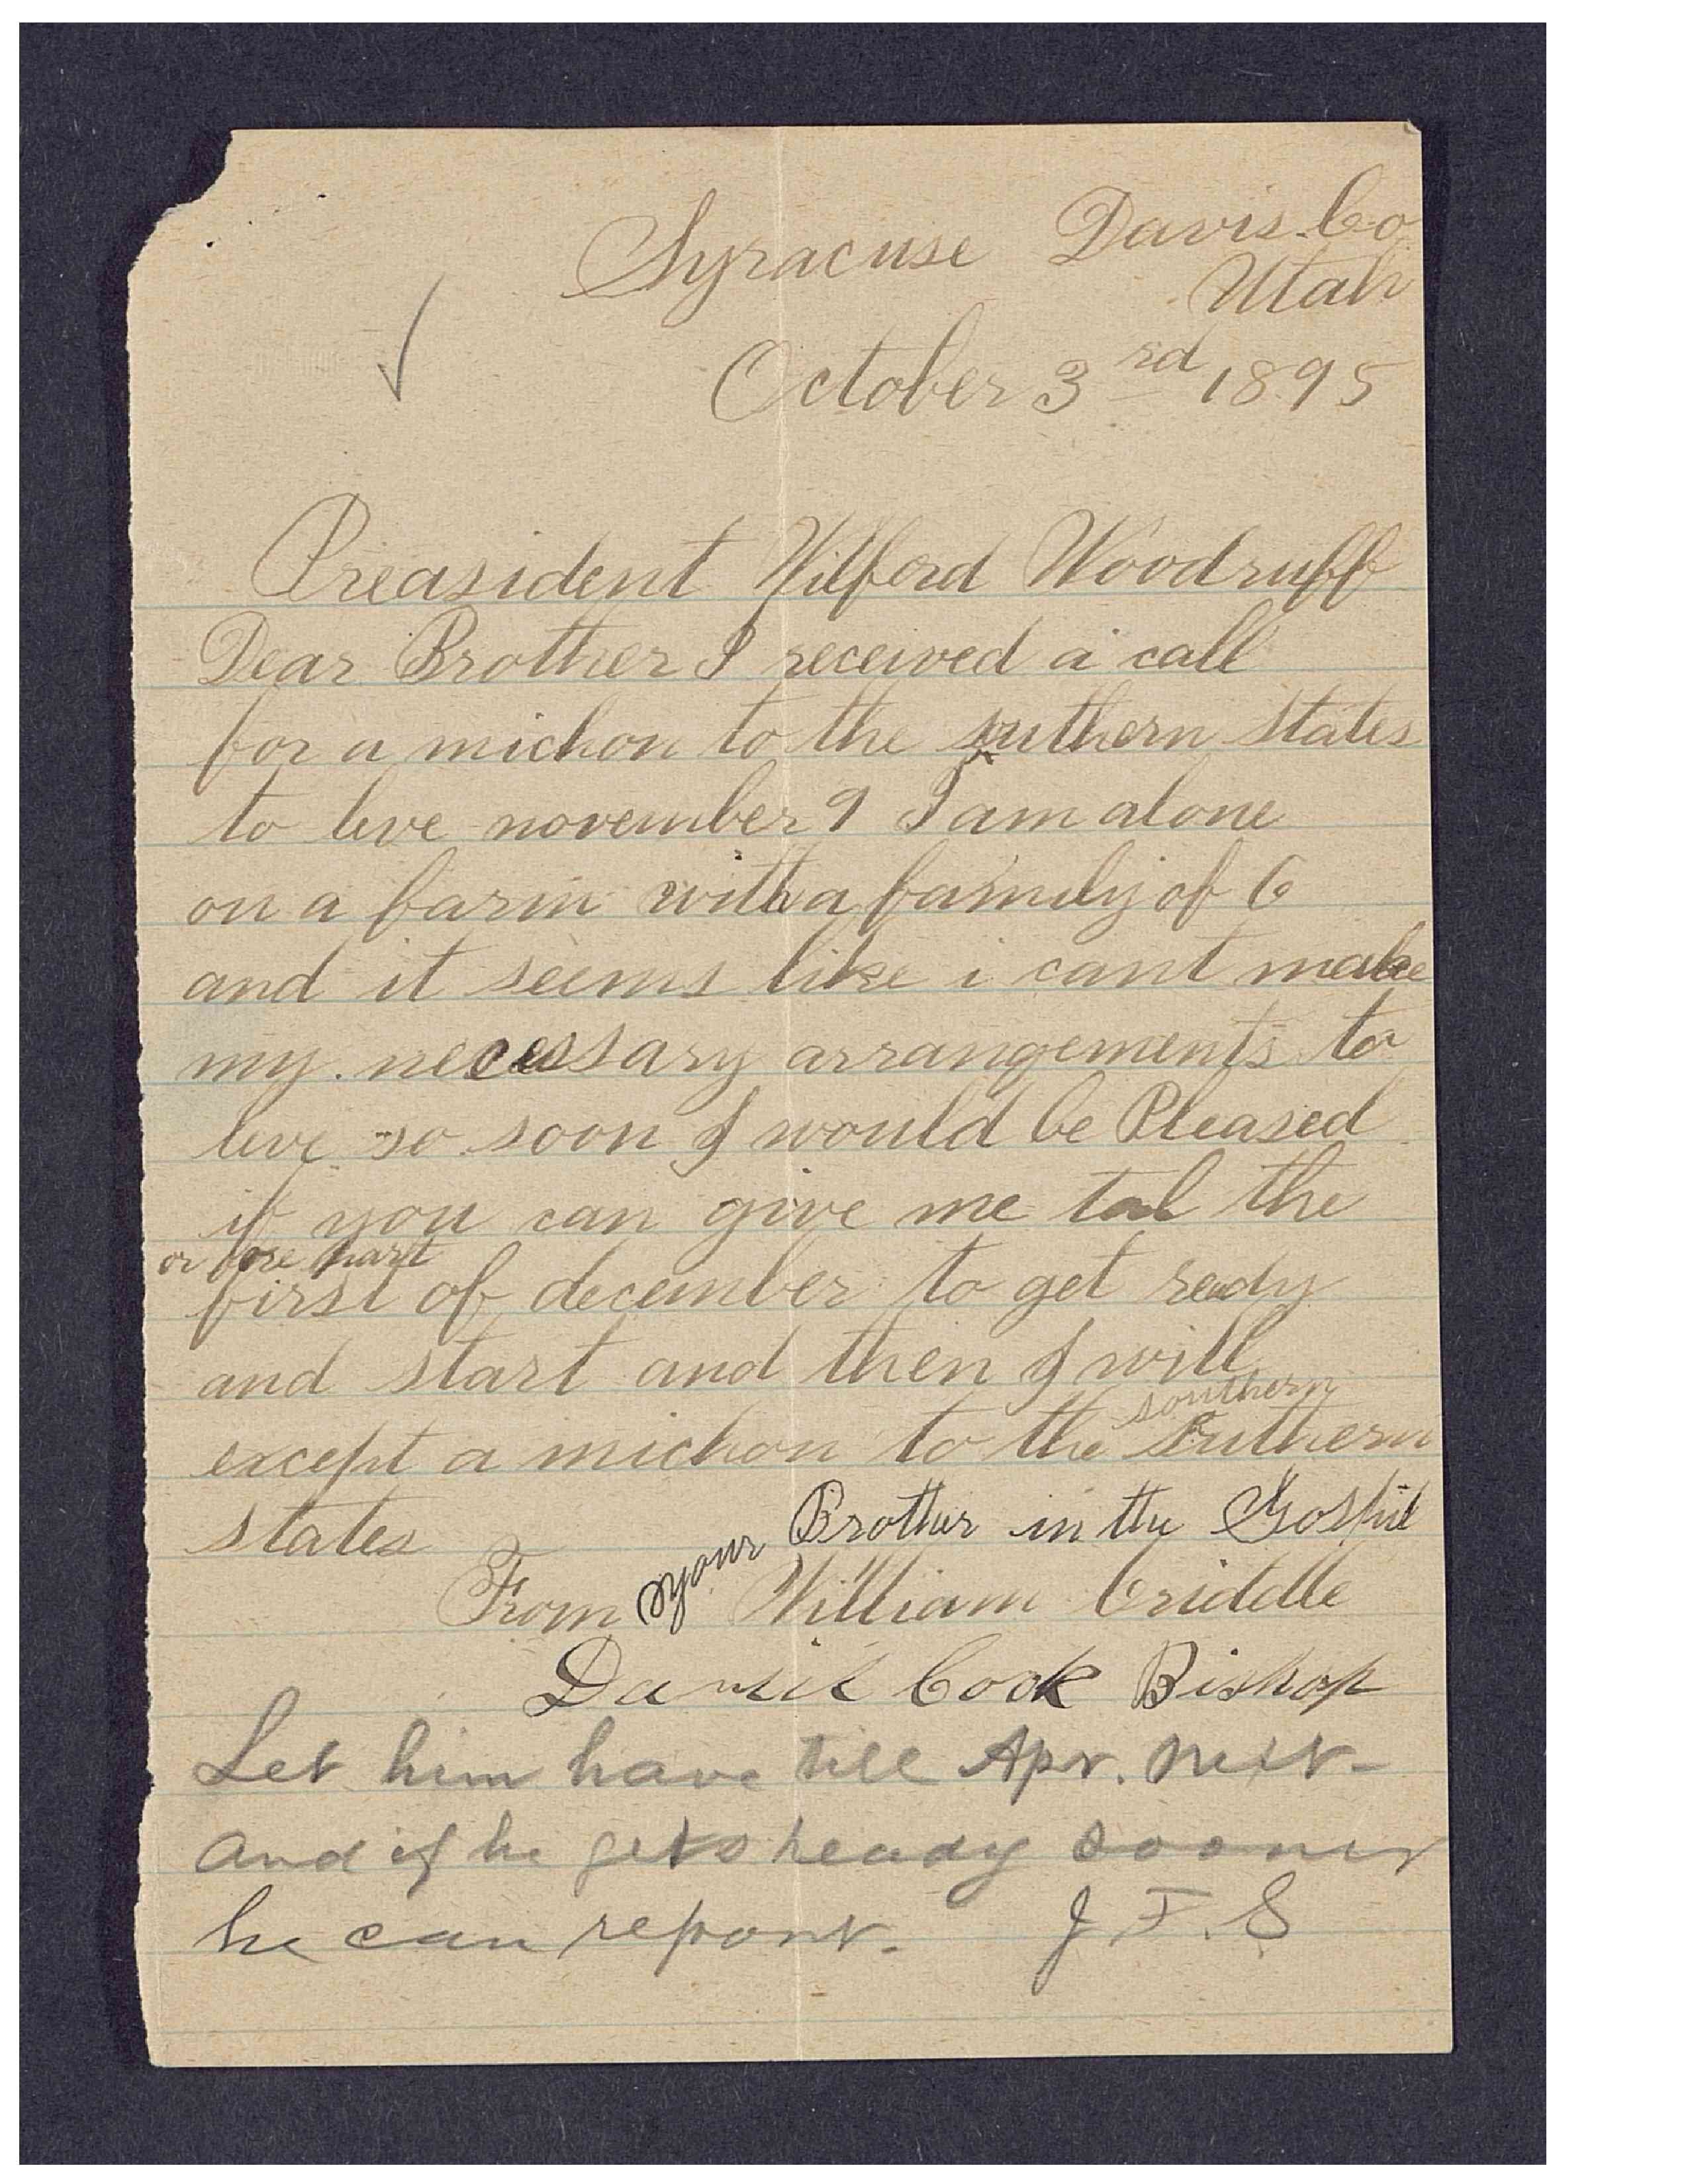 Syracuse Davis Co
Utah
October 3rd 1895
Preasident Wilford Woodruff
Dear Brother I received a call
for a michon to the suthern states
to leve november 9 I am alone
on a farm with a family of 6
and it seems like i cant make
my necessary arrangements to
leve so soon I would be Pleased
if you can give me tal the
or fore part
first of december to get ready
and start and then I will
southern
except a michon to the suthern
states
your Brother in the Gospil
From William Criddle
Cook Bishop
Let him have till Apr. next-
and if he gets ready sooner
he can report. J F. S